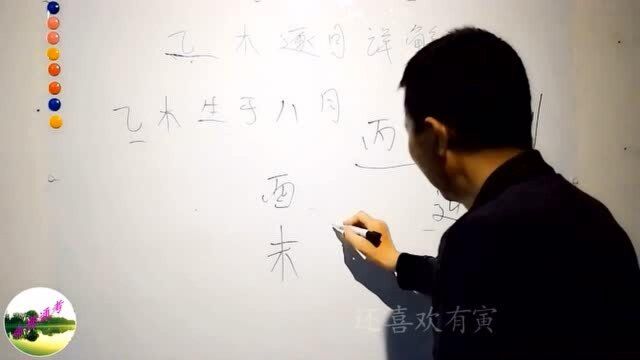 乙木逐月详解
乙木生于八月
丙
酉
未
还喜欢有寅